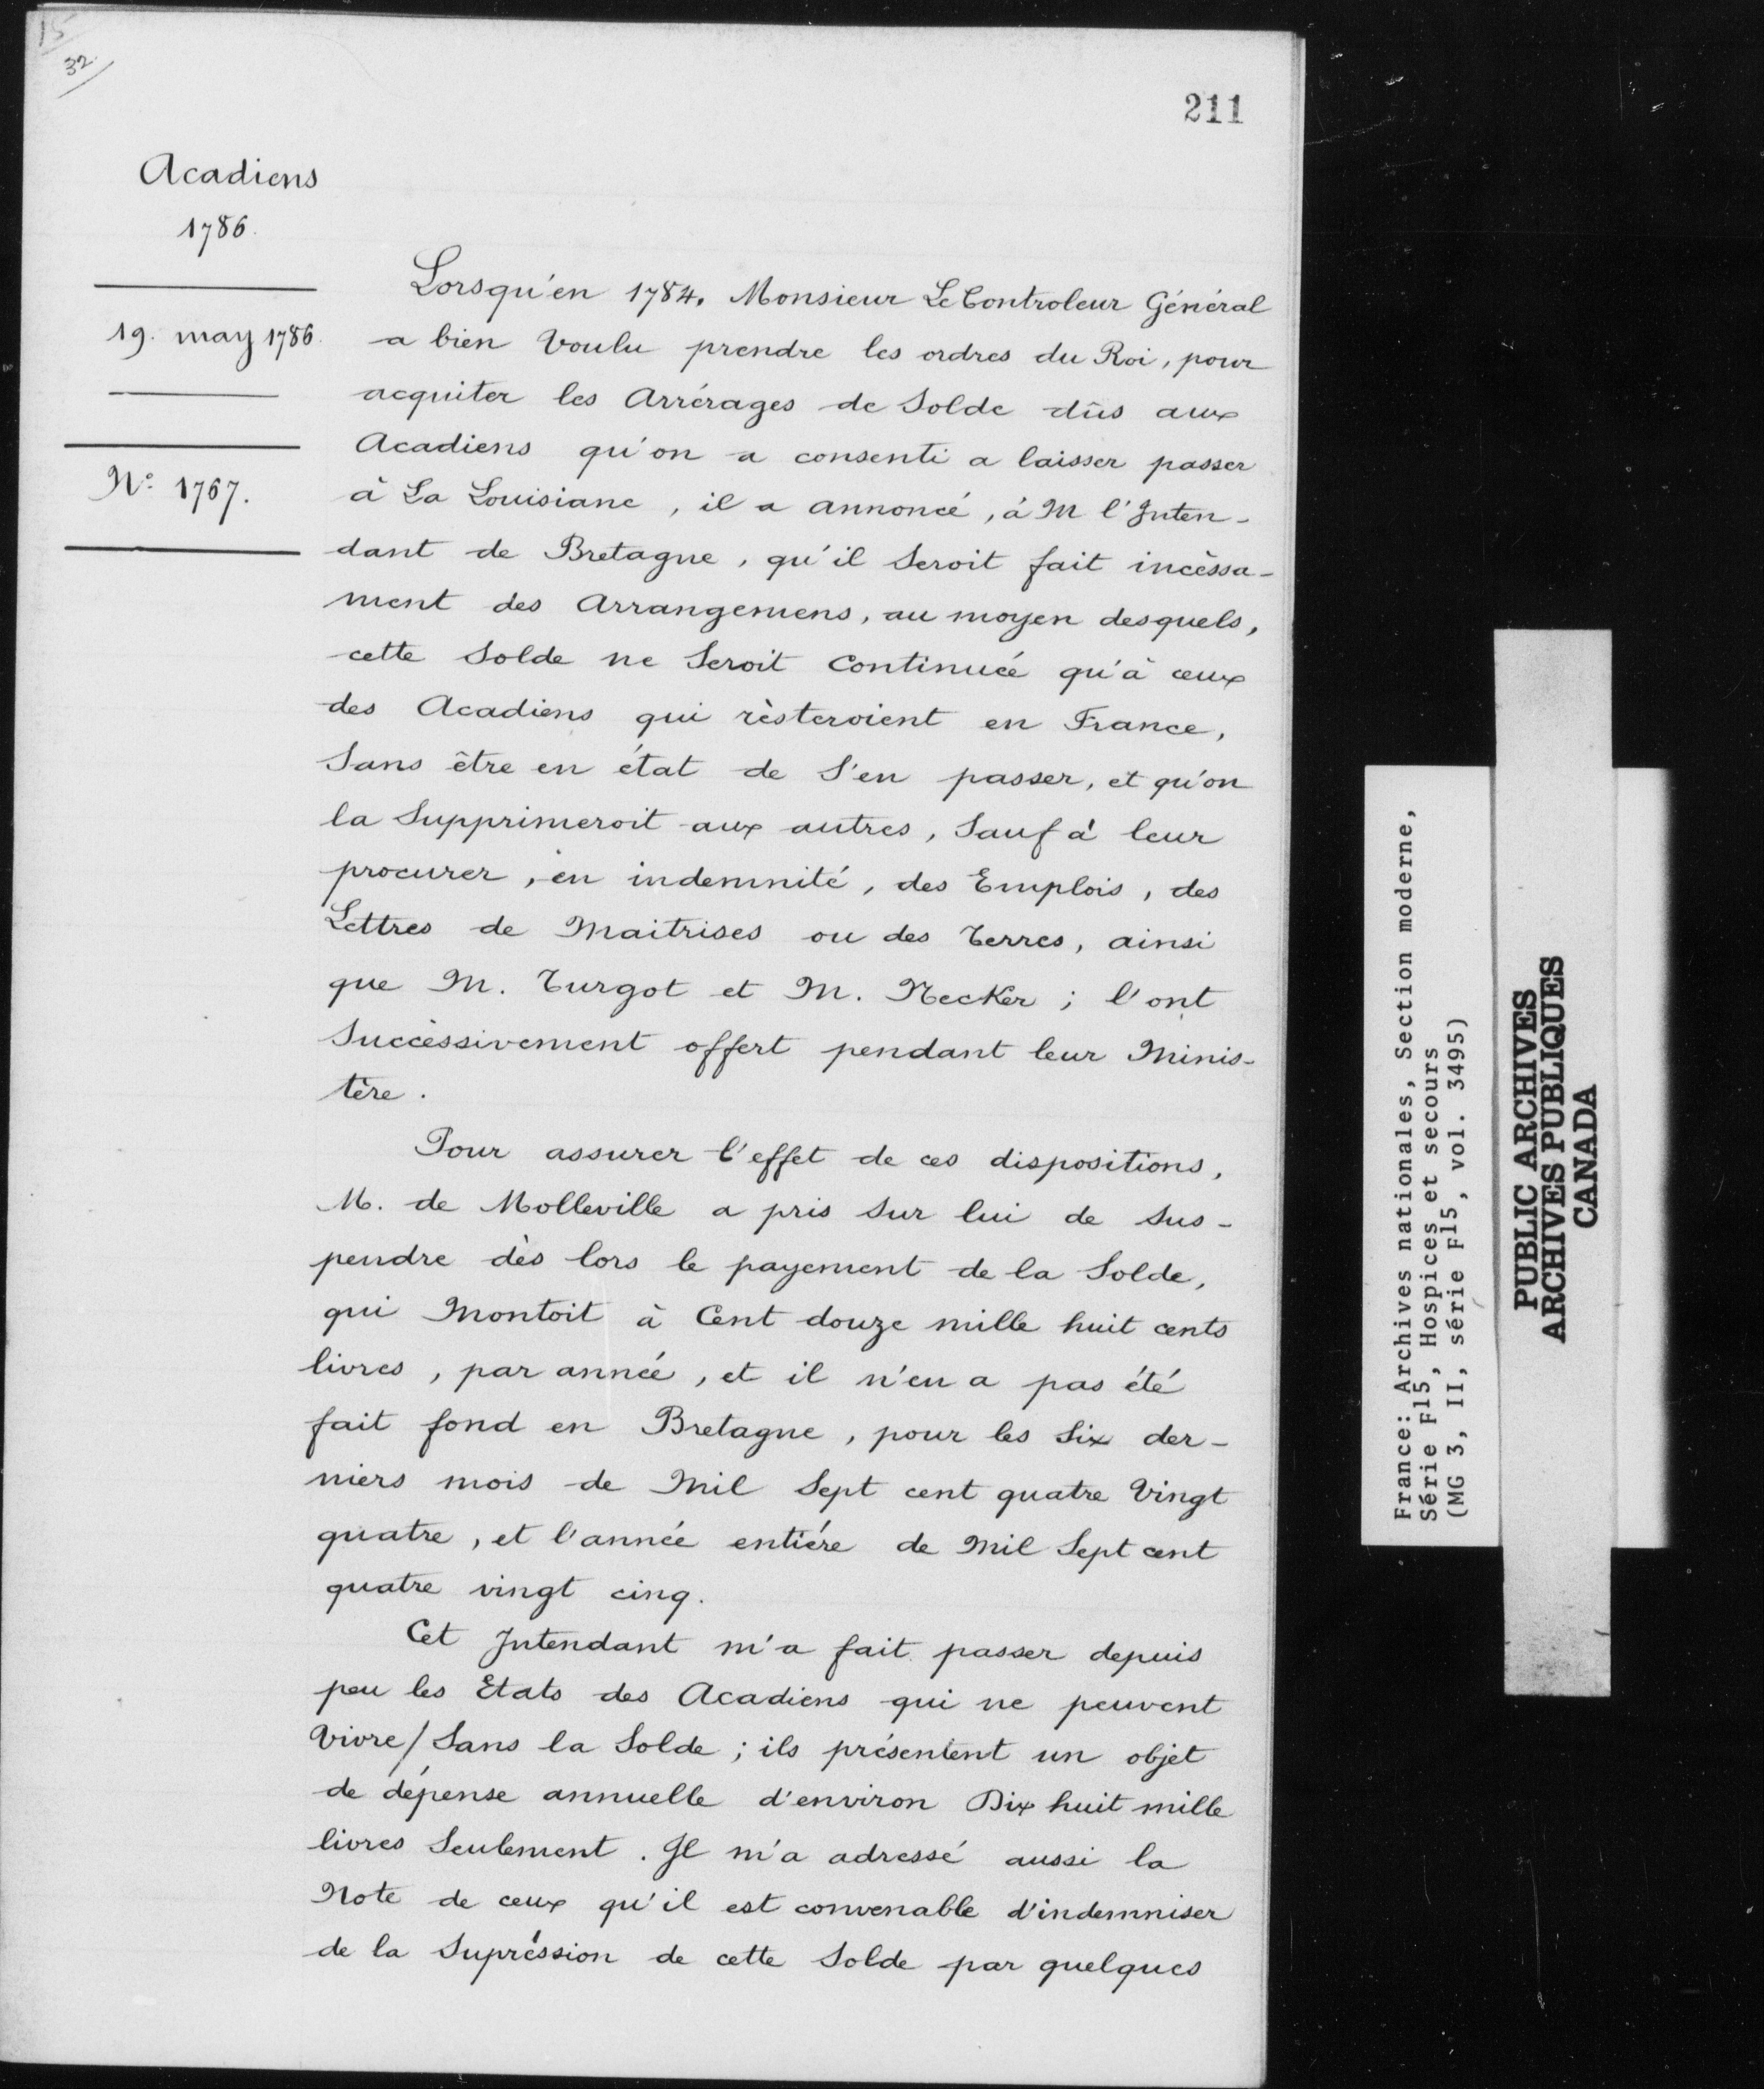 15
32
211
Acadiens
1786.
19. may 1786.
Nº 1767.
Lorsqu'en 1784, Monsieur Le Controleur Général
a bien Voulu prendre les ordres du Roi, pour
acquiter les Arrérages de Solde dûs aux
Acadiens qu'on a consenti a laisser passer
à La Louisiane, il a annoncé, à M l'Inten-
dant de Bretagne, qu'il Seroit fait incèssa-
ment des Arrangemens, au moyen desquels,
cette Solde ne Seroit Continuée qu'à ceux
des Acadiens qui rèsteroient en France,
Sans être en état de S'en passer, et qu'on
la Supprimeroit aux autres, Sauf à leur
procurer, en indemnité, des Emplois, des
Lettres de Maitrises ou des Terres, ainsi
que M. Turgot et M. Necker; l'ont
Succèssivement offert pendant leur Minis-
tère.
Pour assurer l'effet de ces dispositions,
M. de Molleville a pris Sur lui de Sus-
pendre dès lors le payement de la Solde,
qui Montoit à Cent douze mille huit cents
livres, par année, et il n'en a pas été
fait fond en Bretagne, pour les Six der-
niers mois de Mil Sept cent quatre Vingt
quatre, et l'année entiére de Mil Sept cent
quatre vingt cinq.
Cet Intendant m'a fait passer depuis
peu les Etats des Acadiens qui ne peuvent
Vivre/Sans la Solde; ils présentent un objet
de dépense annuelle d'environ Dix huit mille
livres Seulement. Il m'a adressé aussi la
Note de ceux qu'il est convenable d'indemniser
de la Supréssion de cette Solde par quelques
France: Archives nationales, Section moderne,
Série F15, Hospices et secours
(MG 3, II, série F15, vol. 3495)
PUBLIC ARCHIVES
ARCHIVES PUBLIQUES
CANADA